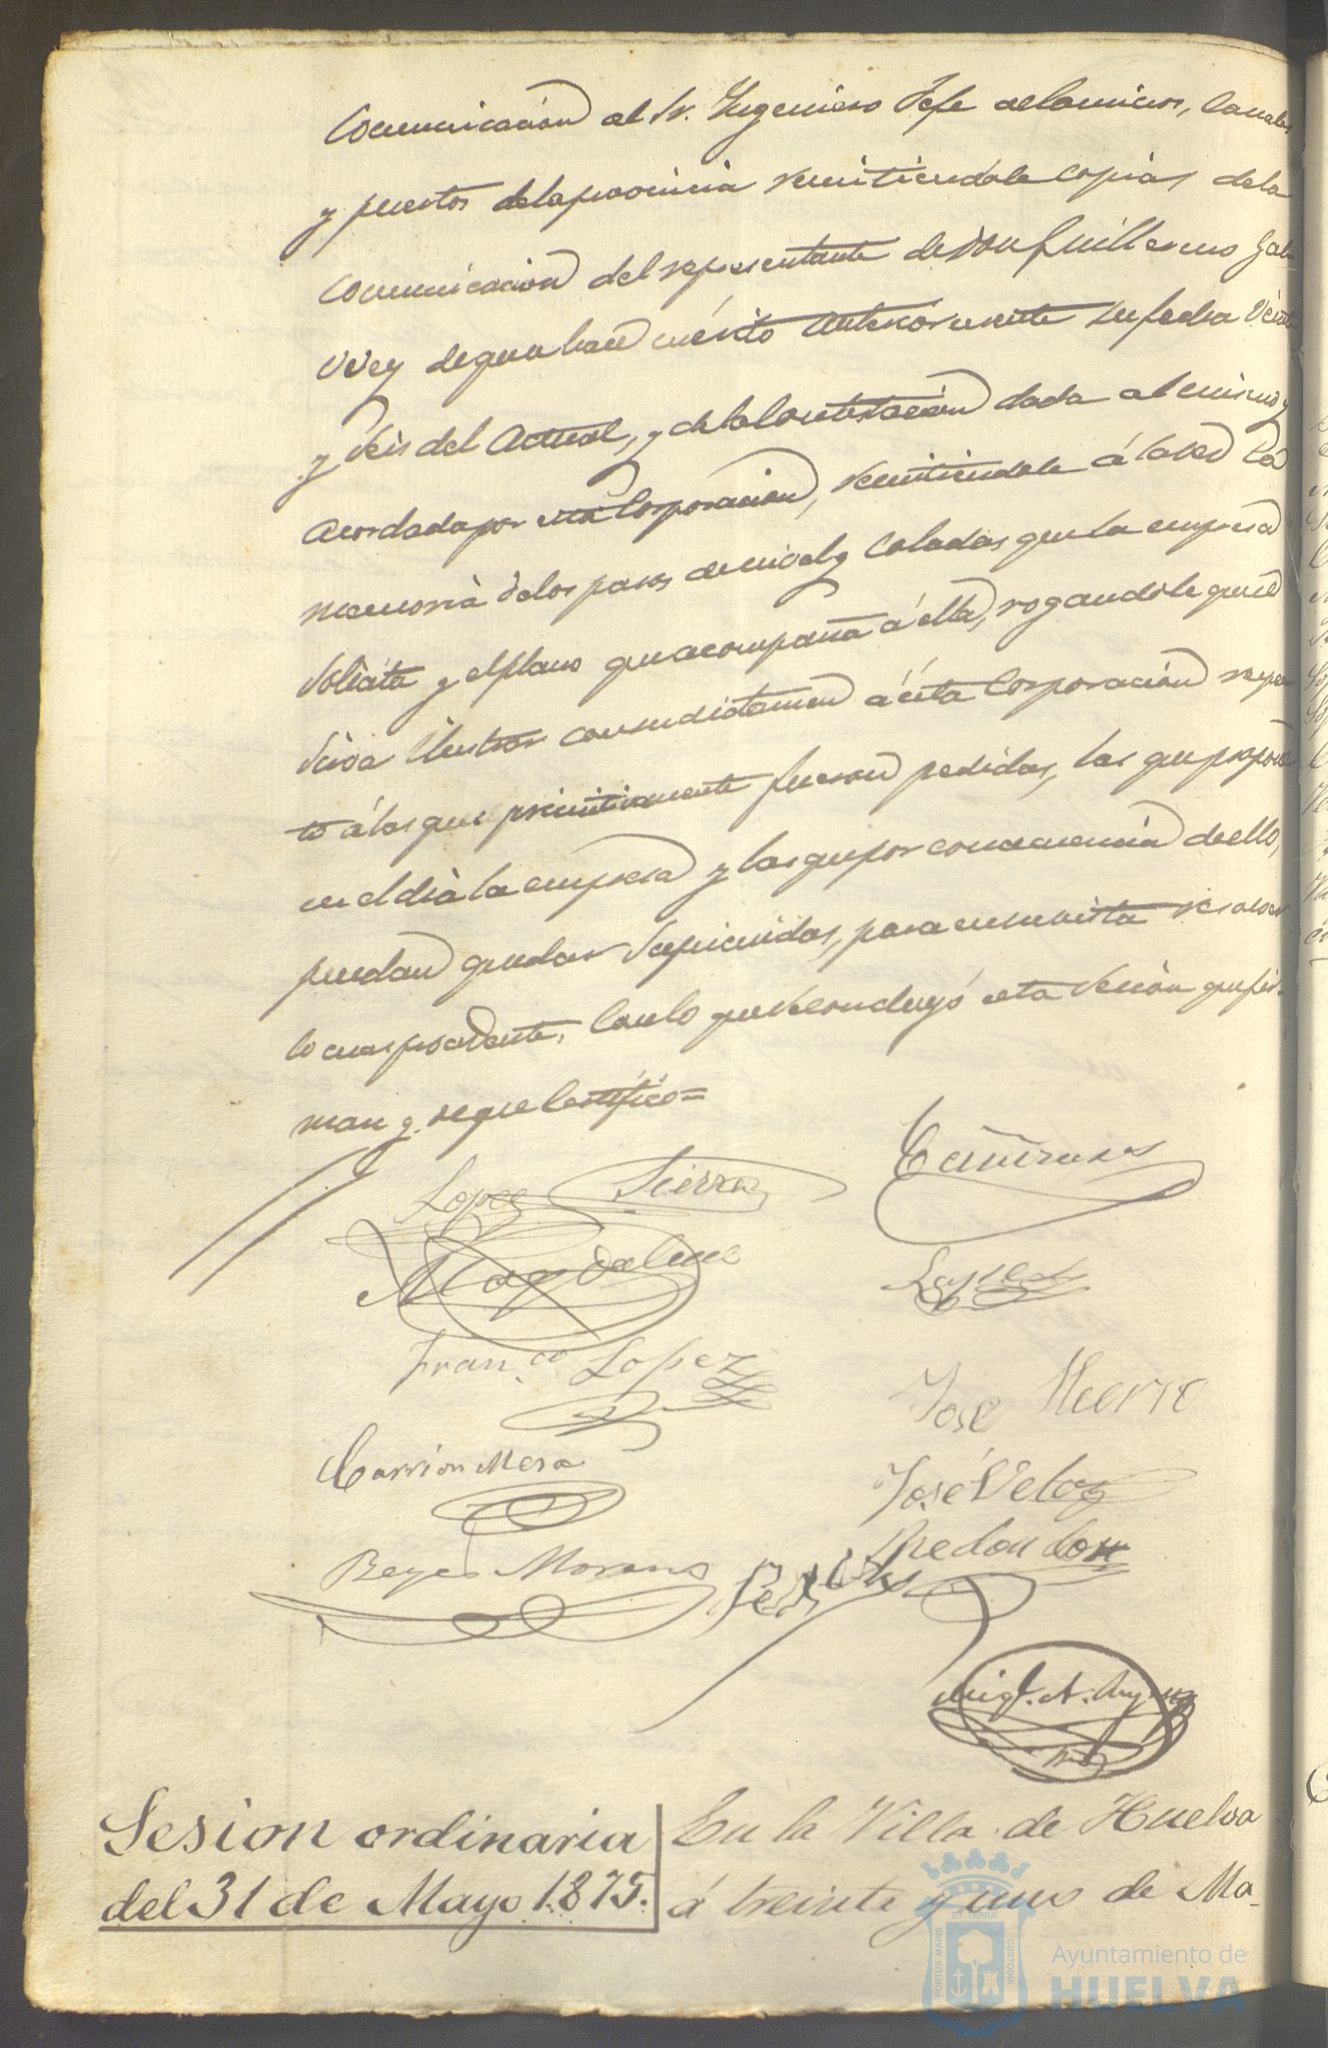 Comunicación al Sr. Ingeniero Jefe de Caminos, Canales
y puertos de la provincia remitiendole copias de la
comunicacion del representante de Don Guillermo
de que hace mérito anteriormente su fecha Veinte
y seis del Actual, y de la Contestacion dada al mismo y
acordada por esta Corporacion, remitiendole á la vez la
memoria de los pasos de nivel y Coladas que la empresa
solicita y el plano que acompaña á ella, rogandole que se
sirva ilustrar con su dictamen á esta Corporacion respec
to á los que primitivamente fueron pedidas, las que propone
en el dia la empresa y las que por consecuencia de ello,
puedan quedar suprimidas, para en su vista resolver
lo mas procedente. Con lo que se concluyó esta Sesion que fir-
man y de que Certifico=
Lopez Sierra
Magdalena
Lopez
Fran.co Lopez
José
Carrion Mesa
José Veloz
Reyes Moreno
Redondo
Sesion ordinaria
del 31 de Mayo 1.875.
En la Villa de Huelva
á treinta y uno de Ma-
PORTUS MARIS
ET TERRÆ
CUSTODIA
Ayuntamiento de
HUELVA